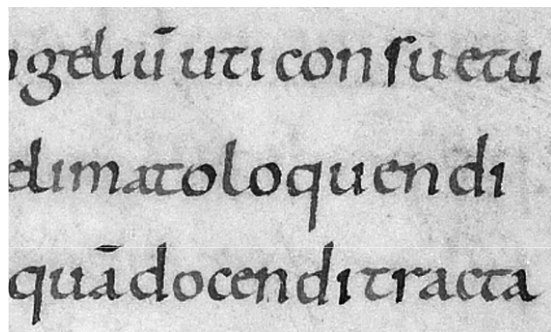 ngeliū uti consuetu
elimato loquendi
quā docendi tracta